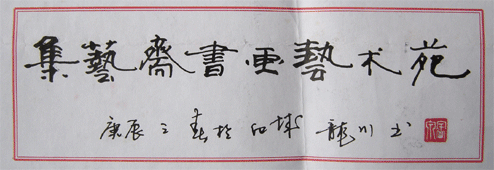 集藝齋書画藝术苑
庚辰之春於石城 龍川书